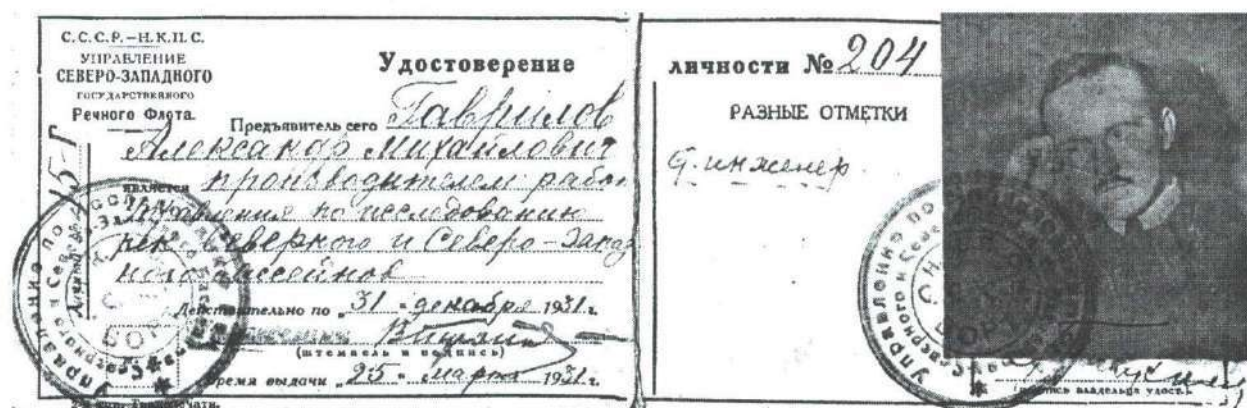 С.С.С.Р.–Н.К.П.С.
УПРАВЛЕНИЕ
СЕВЕРО-ЗАПАДНОГО
ГОСУДАРСТВЕННОГО
Речного Флота.
Удостоверение
Предъявитель сего Гаврилов
Александр Михайлович
является производителем работ
Управления по исследованию
рек Северного и Северо-Запад
ного бассейнов
Действительно по „31 " декабря 1931 г.
(штемпель и подпись)
Время выдачи „25 " марта 1931 г.
15-Г
личности № 204
РАЗНЫЕ ОТМЕТКИ
инженер
(подпись владельца удост.)